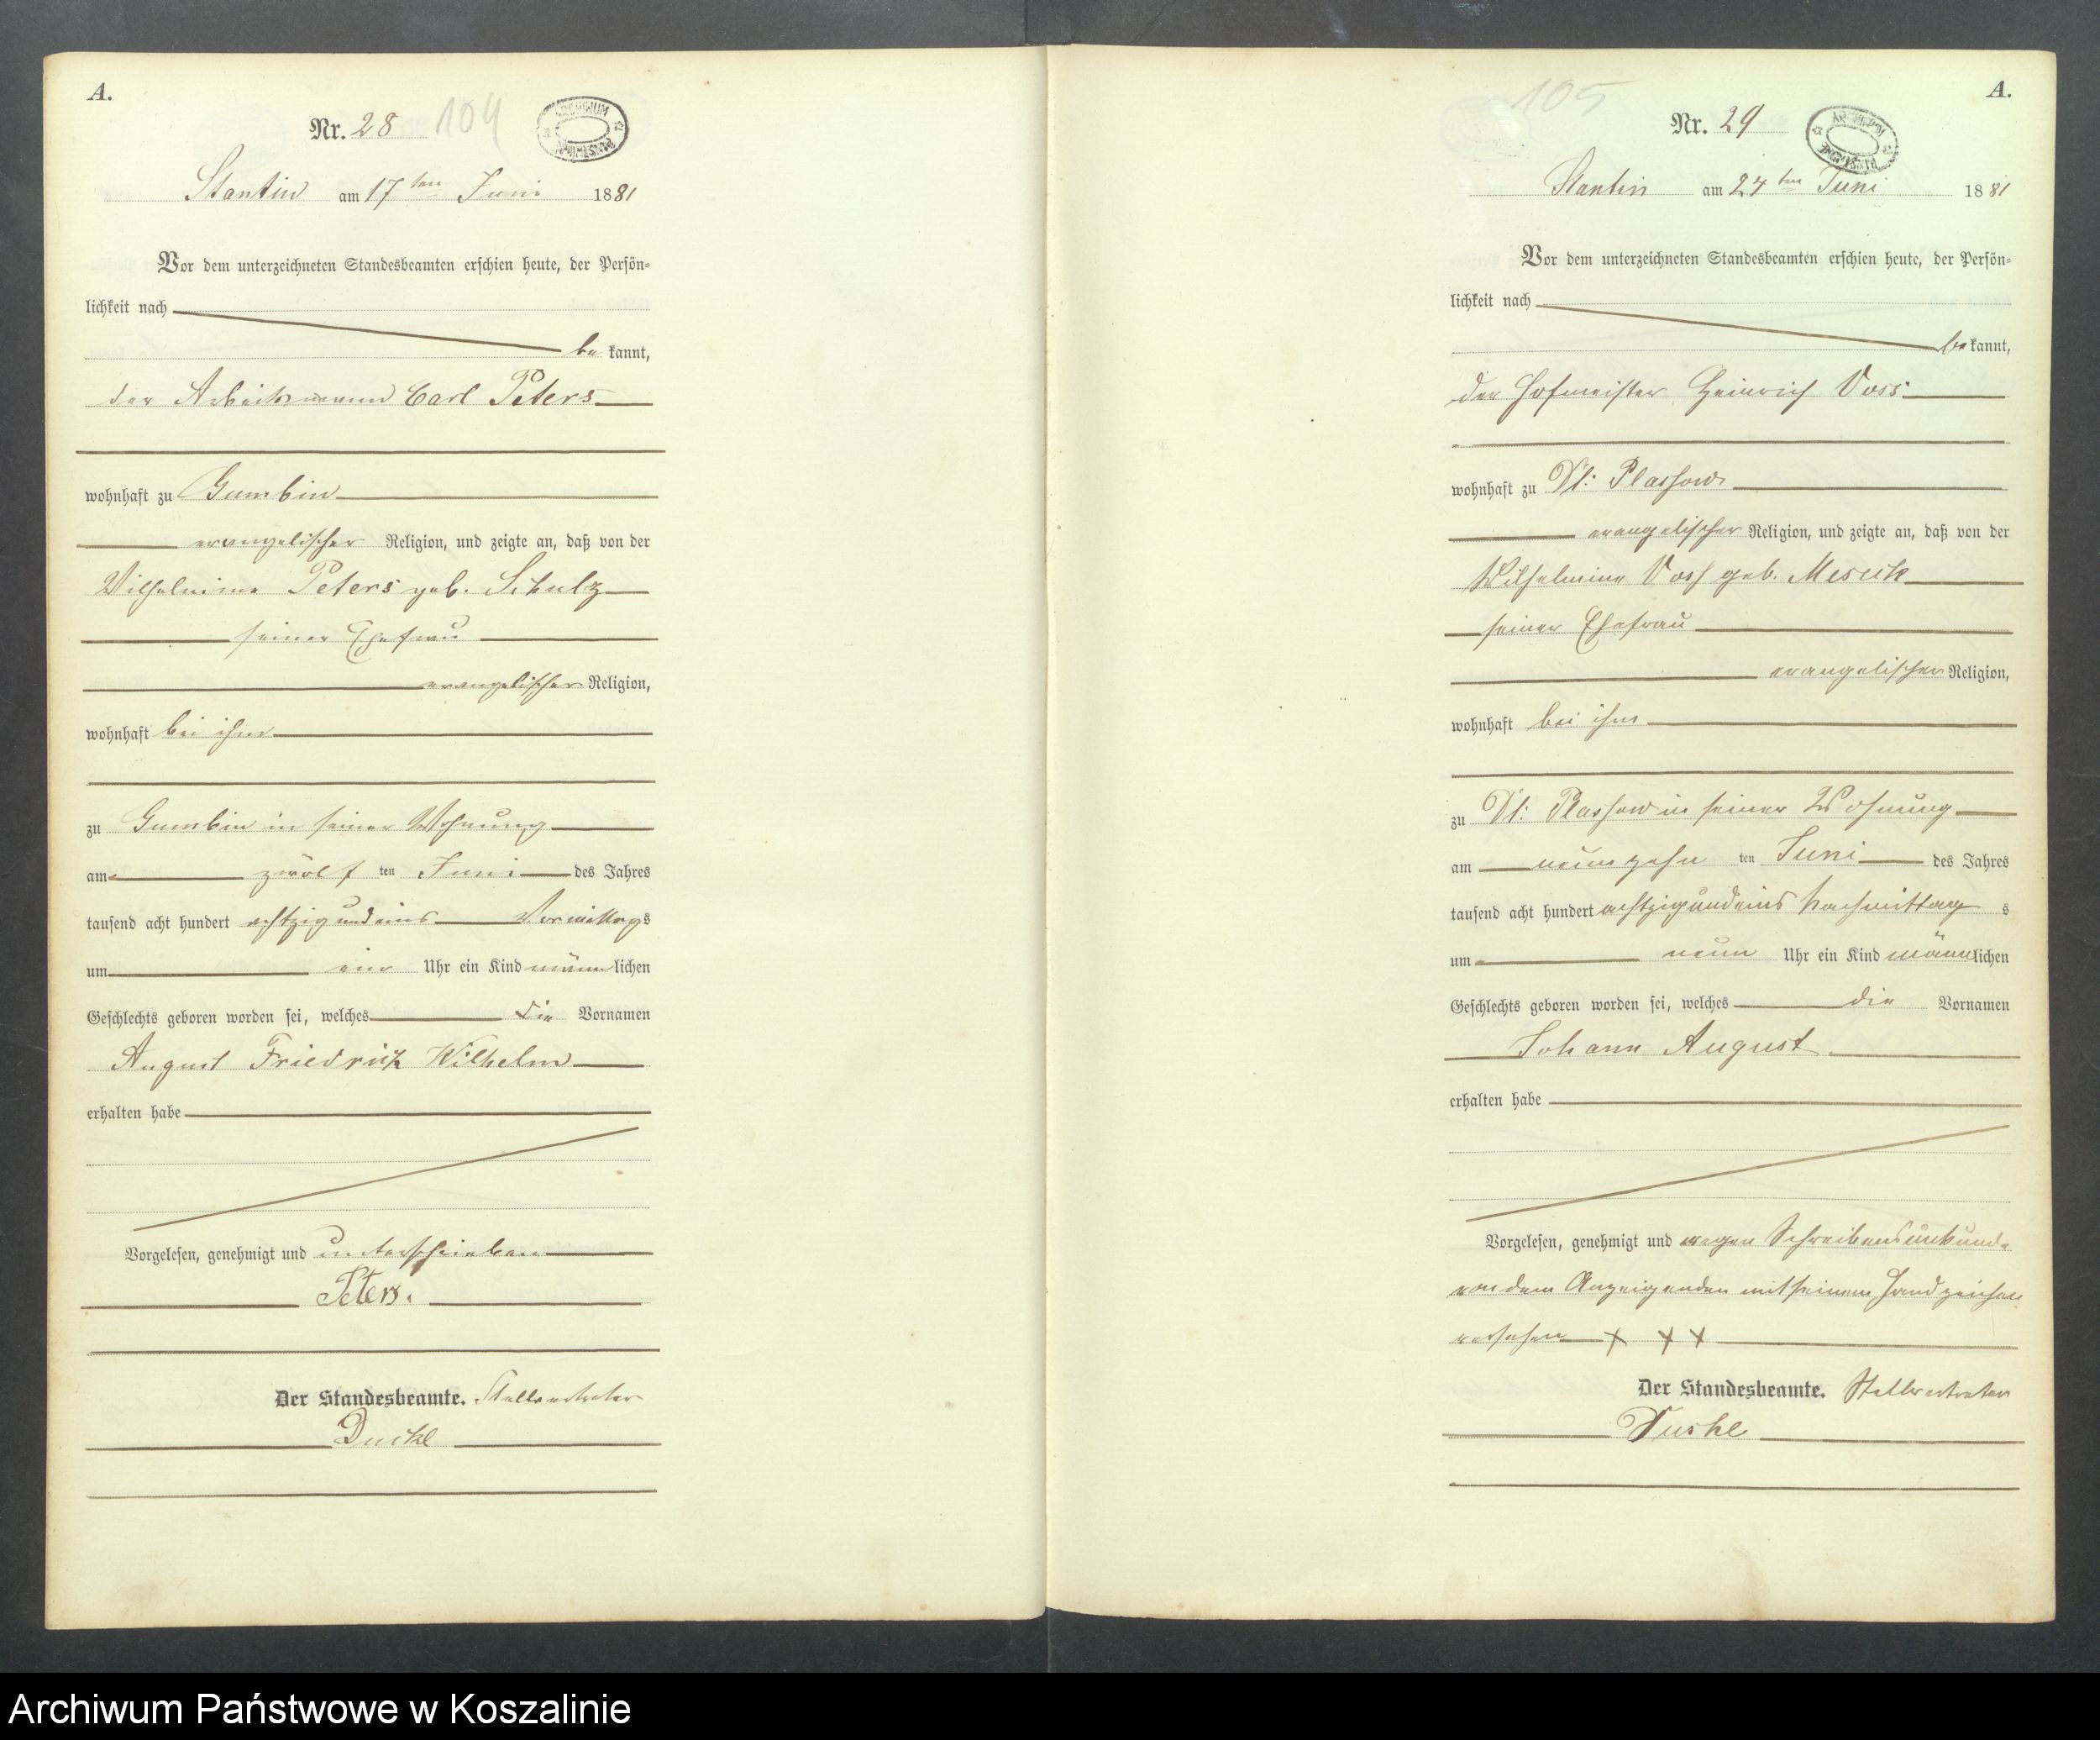 A.
Nr. 28 104
ARCHIWUM PAŃSTWOWE
Stantin am 17ten Juni 1881
Vor dem unterzeichneten Standesbeamten erschien heute, der Persön-
lichkeit nach
be kannt,
der Arbeitsmann Carl Peters
wohnhaft zu Gumbin
evangelischer Religion, und zeigte an, daß von der
Wilhelmine Peters geb. Schulz
seiner Ehefrau
evangelischer Religion,
wohnhaft bei ihm
zu Gumbin in seiner Wohnung
am zwölf ten Juni des Jahres
tausend acht hundert achtzig und eins Vormittags
um ein Uhr ein Kind männlichen
Geschlechts geboren worden sei, welches die Vornamen
August Friedrich Wilhelm
erhalten habe
Vorgelesen, genehmigt und unterschrieben
Peters.
Der Standesbeamte. Stellvertreter
A.
105
Nr. 29
ARCHIWUM PAŃSTWOWE
Stantin am 24ten Juni 1881
Vor dem unterzeichneten Standesbeamten erschien heute, der Persön-
lichkeit nach
be kannt,
der Hofmeister Heinrich Voss
wohnhaft zu Plassow
evangelischer Religion, und zeigte an, daß von der
Wilhelmine Voss geb.
seiner Ehefrau
evangelischer Religion,
wohnhaft bei ihm
zu Plassow in seiner Wohnung
am neunzehn ten Juni des Jahres
tausend acht hundert achtzigundeins Nachmittag s
um neun Uhr ein Kind männlichen
Geschlechts geboren worden sei, welches die Vornamen
Johann August
erhalten habe
Vorgelesen, genehmigt und wegen Schreibensunkunde
von dem Anzeigenden mit seinem Handzeichen
versehen + + +
Der Standesbeamte. Stellvertreter
Archiwum Państwowe w Koszalinie